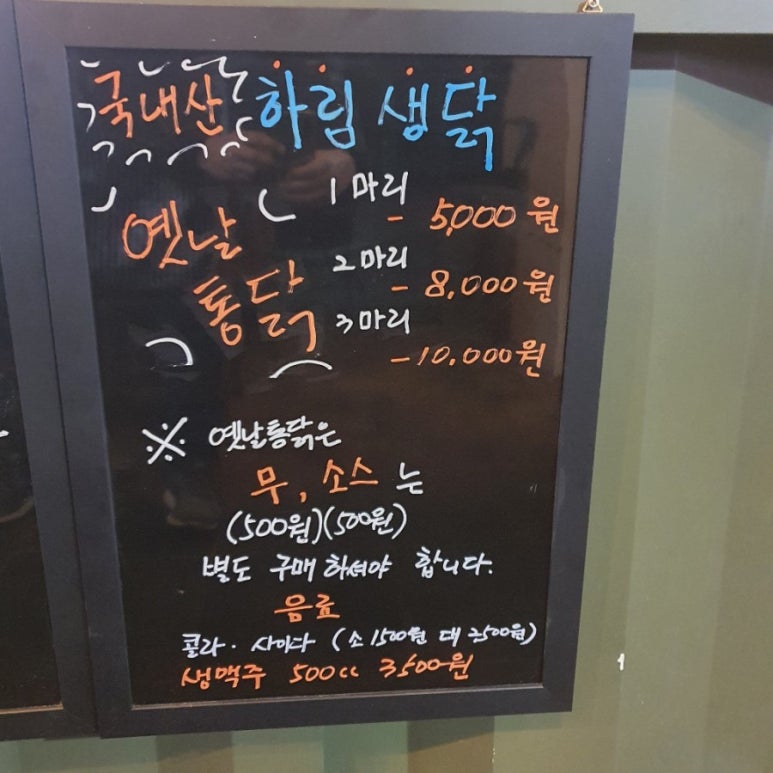 국내산 하림 생닭
옛날 통닭
1마리 - 5,000원
2마리 - 8,000원
3마리 - 10.000원
※ 옛날통닭은
무, 소스 는
(500원)(500원)
별도 구매 하셔야 합니다.
음료
콜라 · 사이다 (소 1500원 대 2500원)
생맥주 500cc 3500원